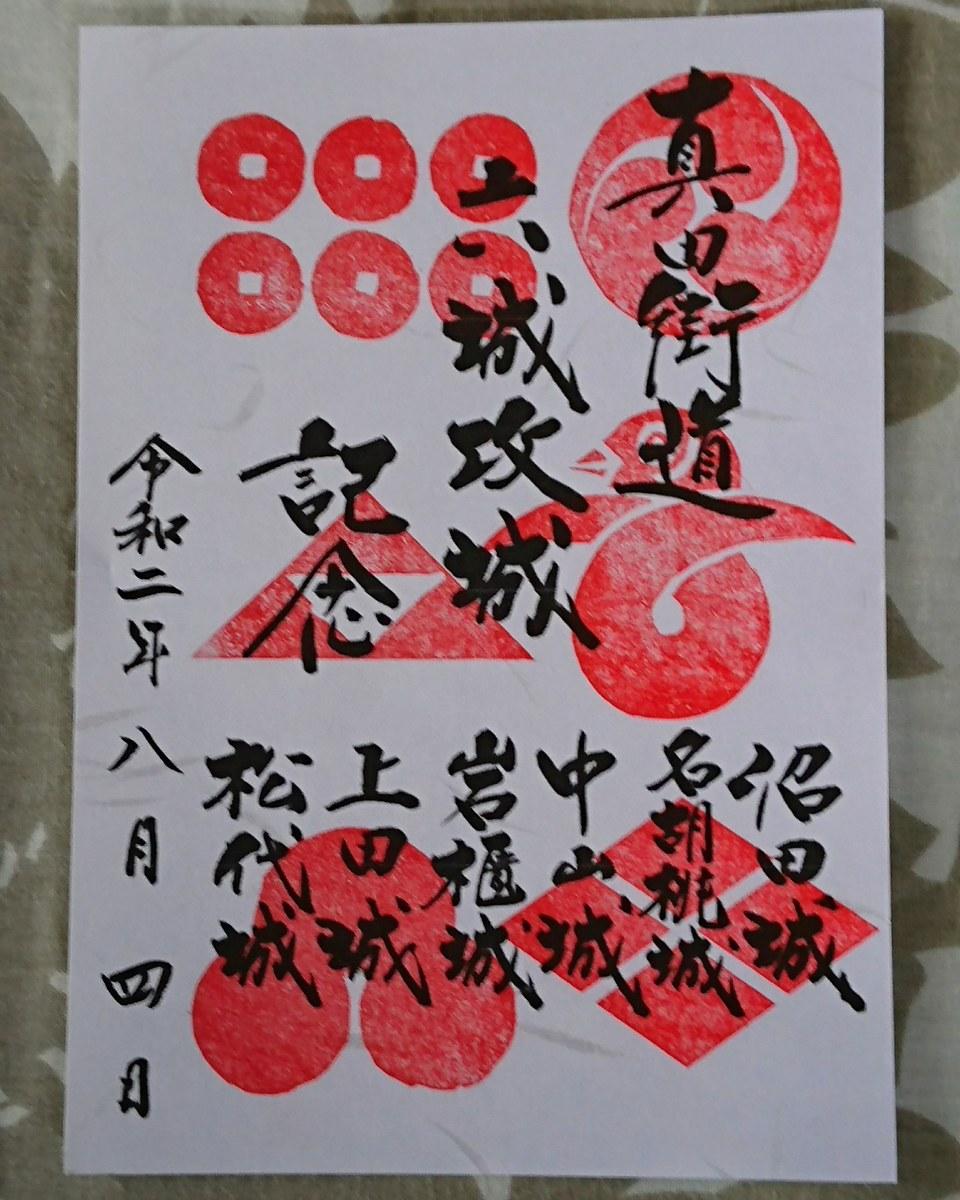 真田街道
六城攻城
記念
沼田城
名胡桃城
中山城
岩櫃城
上田城
松代城
令和二年八月四日